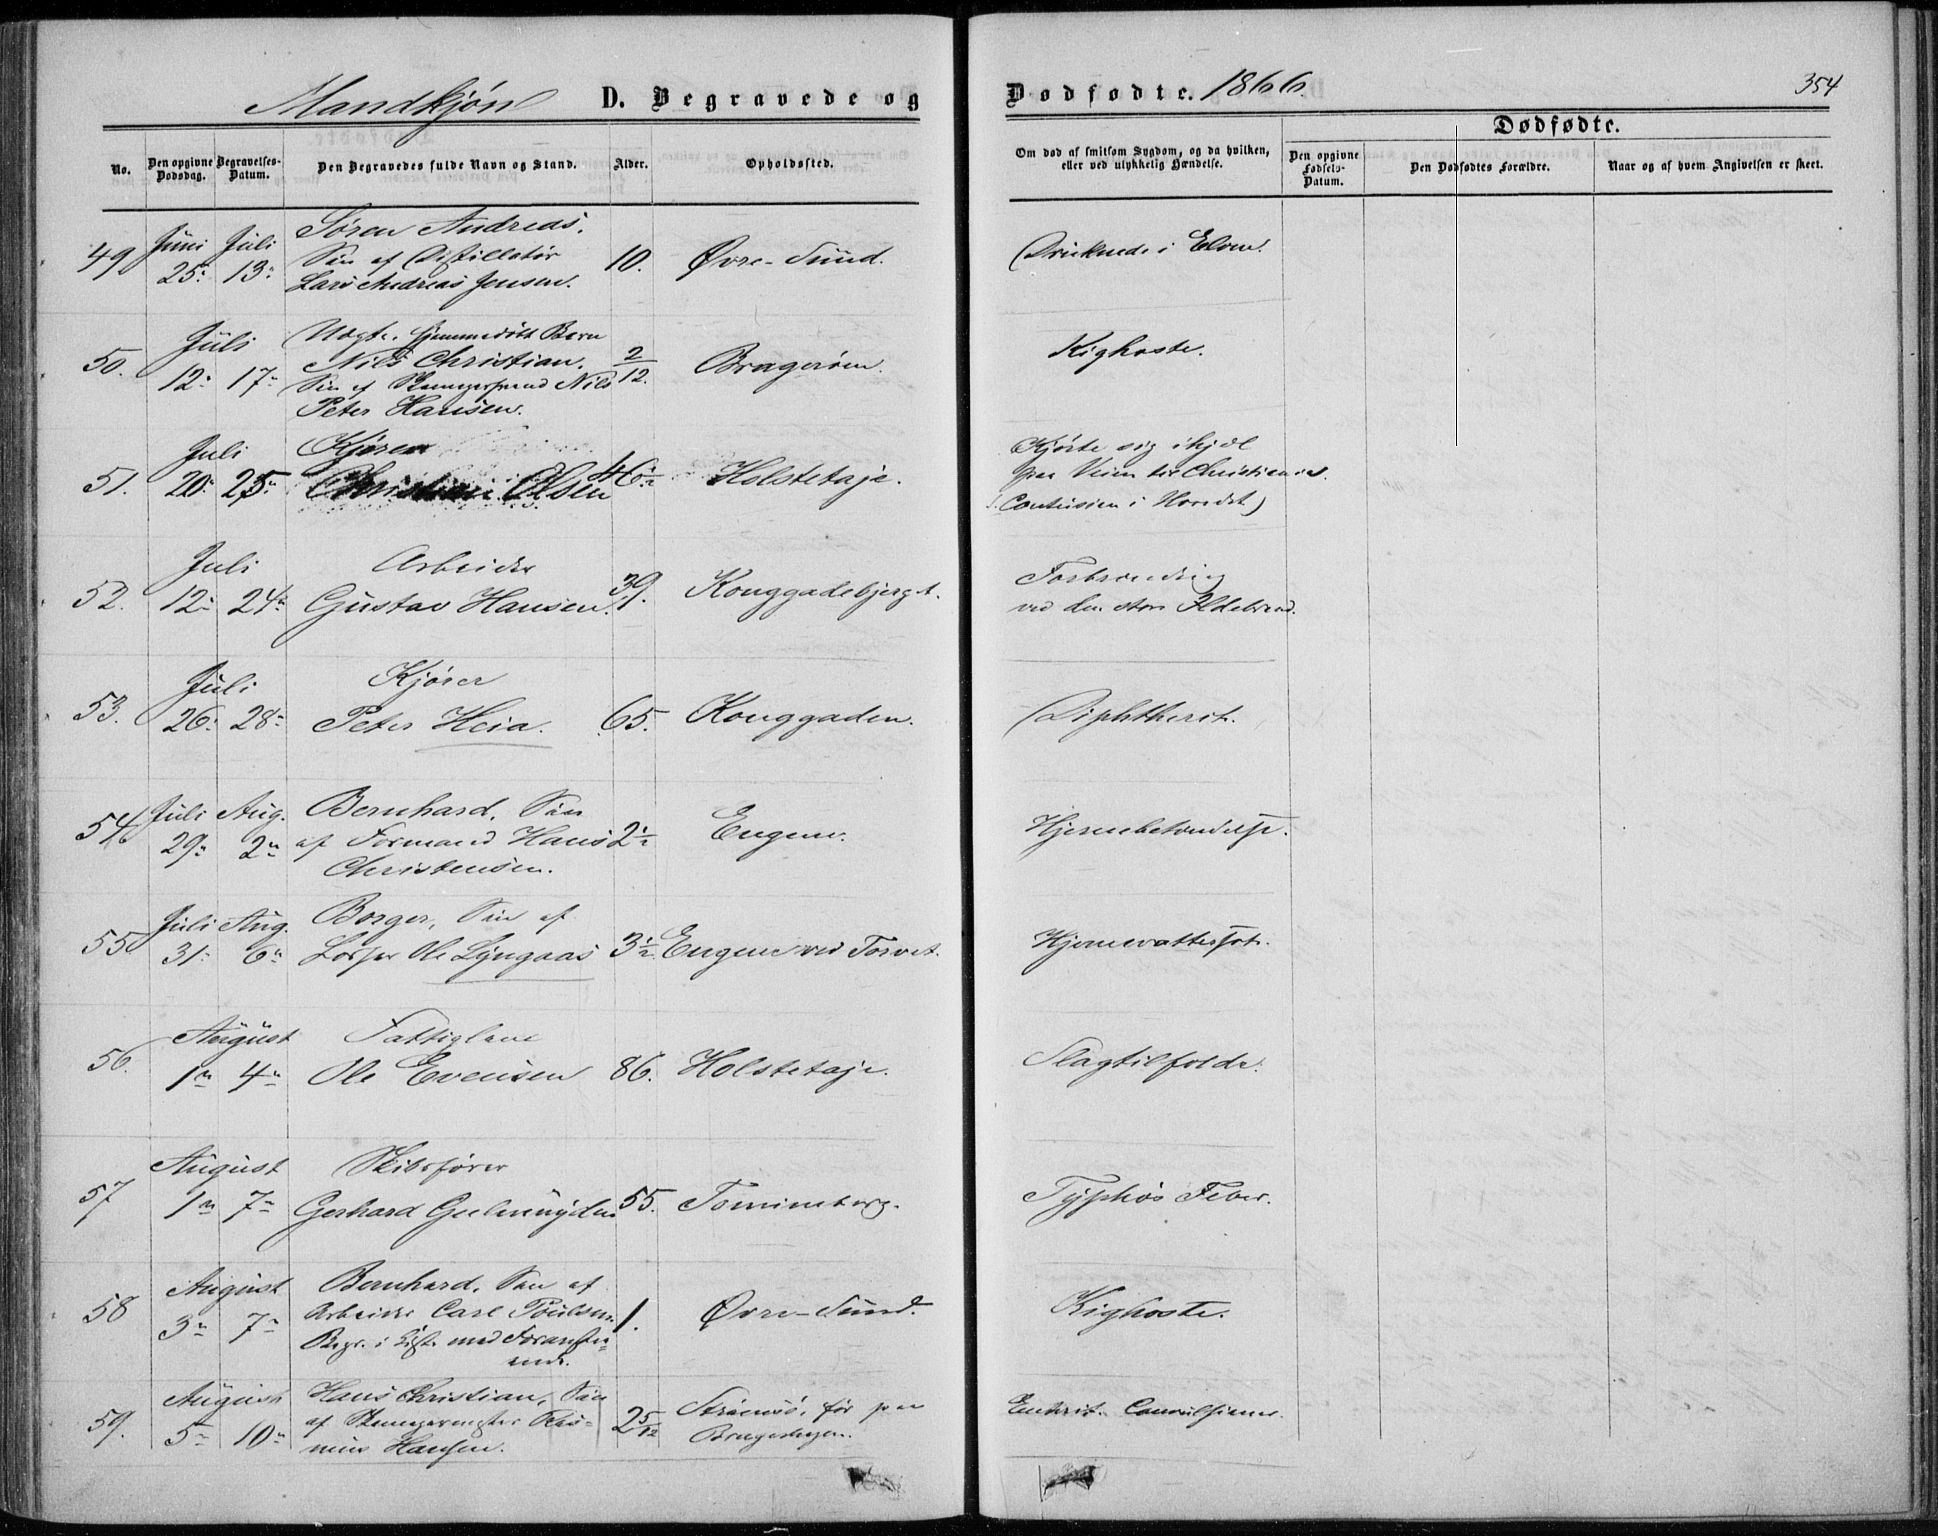 Mandkjøn D. Begravede og
Dødfødte. 1866. 354
No. Den opgivne Dødsdag. Begravelses-Datum. Den Begravedes fulde Navn og Stand. Alder. Opholdssted.
Om død af smitsom Sygdom, og da hvilken, eller ved ulykkelig Hændelse.
Dødfødte.
Den opgivne Fødsels-Datum. Den Dødfødtes Forældre. Naar og af hvem Angivelsen er skeet.
49 Juni 25. Juli 13.
Søren Andreas,
Søn af Distillatør
Lars Andreas Jensen.
10. Øvre-Sund.
Druknede i Elven.
50. Juli 12. 17.
Uægte. Hjemmedøbt Barn
Nils Christian.
Søn af Nils
Peter Hansen.
2/12. Bragerøen.
Kighoste.
51. Juli 20. 25.
Kjører
Christian Olsen
46 1/2 Holstetaje.
Kjørte sig ihjæl
paa Veien til Christiania.
(Contusion i Hovedet)
52. Juli 12. 24.
Arbeider
Gustav Hansen.
39. Konggadebjergt.
Forbrænding
ved den store Ildebrand.
53. Juli 26. 28.
Kjører
Peter Heia.
65. Konggaden.
Diphtherit.
54 Juli 29. Aug. 2
Bernhard, Søn
af Formand Hans
Christensen.
2 1/2 Engene.
Hjernebetændelse.
55 Juli 31. Aug. 6
Borger, Søn af
Ole Lyngaas
3 1/2. Engene ved Torvet.
Hjernevattersot.
56. August 1 4
Fattiglem
Ole Evensen
86. Holstetaje.
Slagtilfælde.
57 August 1 7
Skibsfører
Gerhard Gulmüyden
55. Tomineborg.
Typhøs Feber.
58 August 3 7
Bernhard, Søn af
Arbeider Carl Poulsen.
Begr. i Kiste med Foranstaa-
ende.
1. Øvre-Sund.
Kighoste.
59. August 5 10
Hans Christian, Søn
af Ras-
mus Hansen.
2 5/12 Strømsø, før paa
Bragernes.
Enterit. Convulsioner.